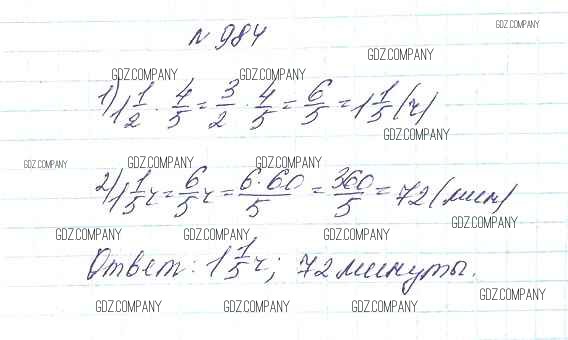 № 984
GDZ.COMPANY
GDZ.COMPANY
GDZ.COMPANY GDZ.COMPANY
1) 1 1/2 · 4/5 = 3/2 · 4/5 = 6/5 = 1 1/5 (ч)
GDZ.COMPANY
GDZ.COMPANY GDZ.COMPANY GDZ.COMPANY
2) 1 1/5 ч = 6/5 ч = 6·60/5 = 360/5 = 72 (мин)
GDZ.COMPANY
GDZ.COMPANY GDZ.COMPANY GDZ.COMPANY
Ответ: 1 1/5 ч; 72 минуты.
GDZ.COMPANY
GDZ.COMPANY GDZ.COMPANY GDZ.COMPANY